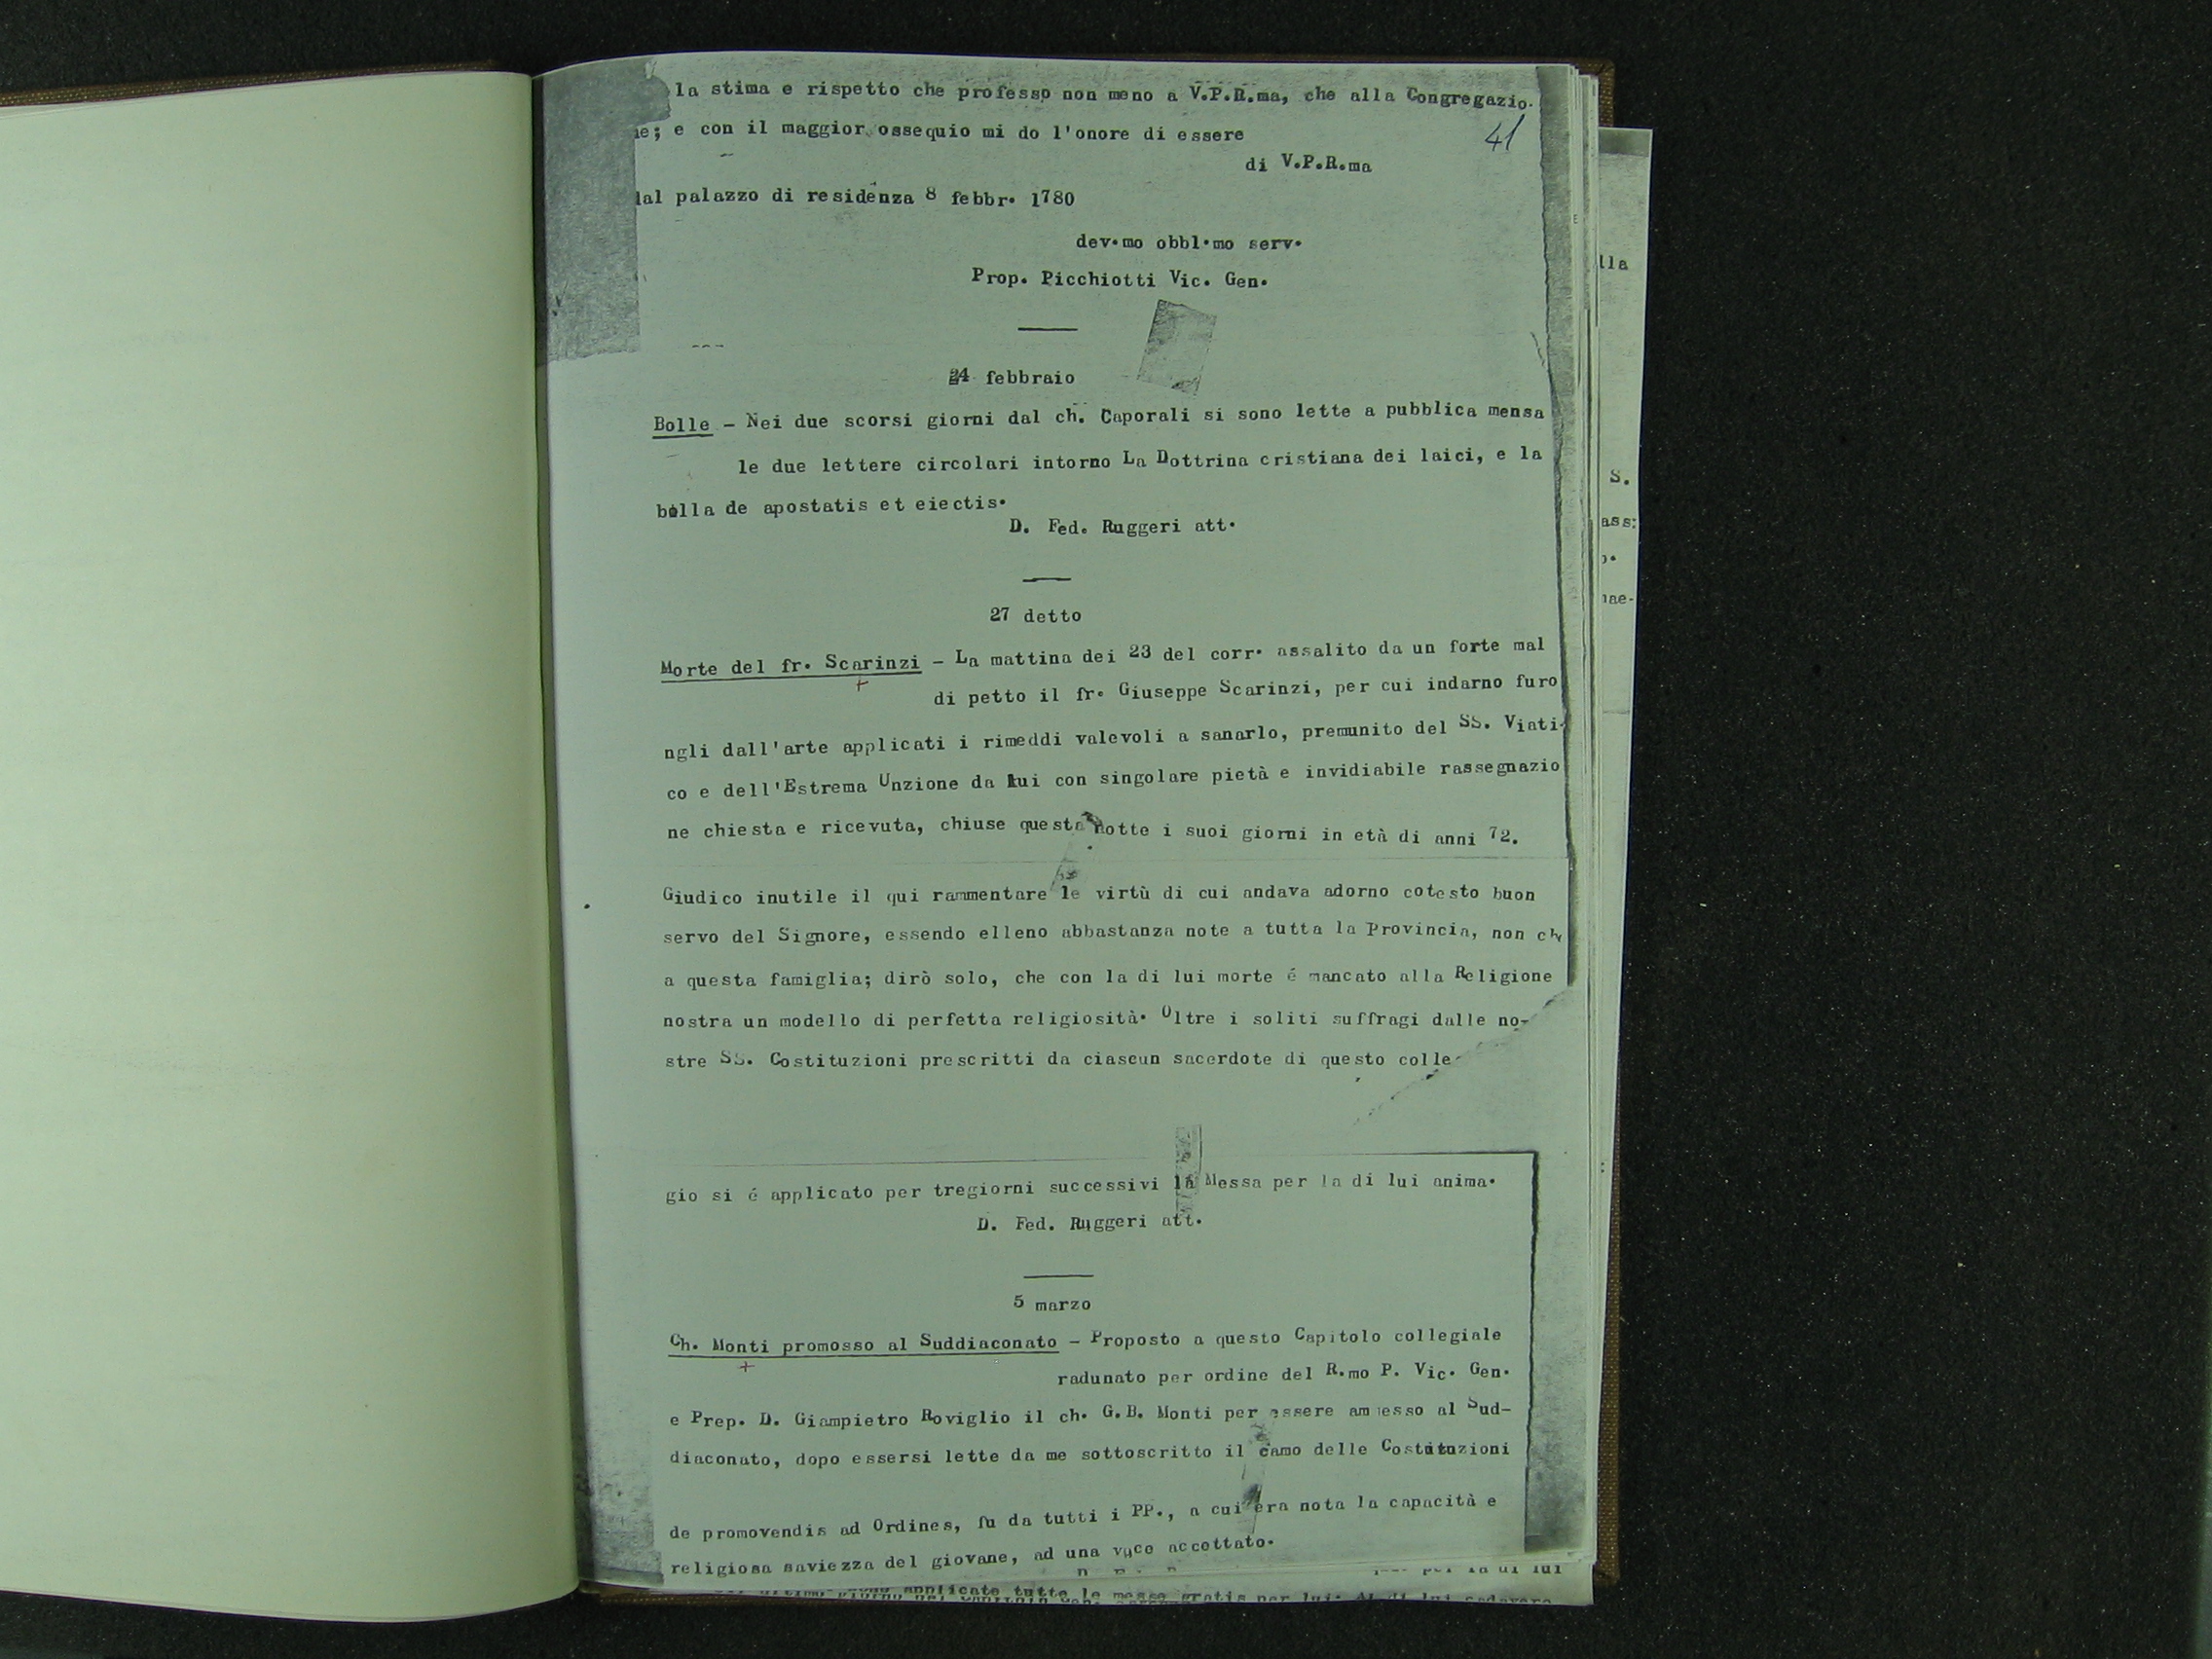 la stima e rispetto che professo non meno a V.P.R.ma, che alla Congregazio-
ne; e con il maggior ossequio mi do l'onore di essere
41
di V.P.R.ma
dal palazzo di residenza 8 febbr. 1780
dev.mo obbl.mo serv.
Prop. Picchiotti Vic. Gen.
24 febbraio
Bolle - Nei due scorsi giorni dal ch. Caporali si sono lette a pubblica mensa
le due lettere circolari intorno La Dottrina cristiana dei laici, e la
bolla de apostatis et eiectis.
D. Fed. Ruggeri att.
27 detto
Morte del fr. Scarinzi - La mattina dei 23 del corr. assalito da un forte mal
di petto il fr. Giuseppe Scarinzi, per cui indarno furo
ngli dall'arte applicati i rimeddi valevoli a sanarlo, premunito del SS. Viati-
co e dell'Estrema Unzione da lui con singolare pietà e invidiabile rassegnazio
ne chiesta e ricevuta, chiuse questa notte i suoi giorni in età di anni 72.
Giudico inutile il qui rammentare le virtù di cui andava adorno cotesto buon
servo del Signore, essendo elleno abbastanza note a tutta la Provincia, non ch
a questa famiglia; dirò solo, che con la di lui morte é mancato alla Religione
nostra un modello di perfetta religiosità. Oltre i soliti suffragi dalle no-
stre SS. Costituzioni prescritti da ciascun sacerdote di questo colle-
gio si é applicato per tregiorni successivi la Messa per la di lui anima.
D. Fed. Ruggeri att.
5 marzo
Ch. Monti promosso al Suddiaconato - Proposto a questo Capitolo collegiale
radunato per ordine del R.mo P. Vic. Gen.
e Prep. D. Giampietro Roviglio il ch. G.B. Monti per essere ammesso al Sud-
diaconato, dopo essersi lette da me sottoscritto il camo delle Costituzioni
de promovendis ad Ordines, fu da tutti i PP., a cui era nota la capacità e
religiosa saviezza del giovane, ad una voce accettato.
per la di lui
applicate tutte le messe gratis per lui; Al di lui cadavere
lla
S.
ass: